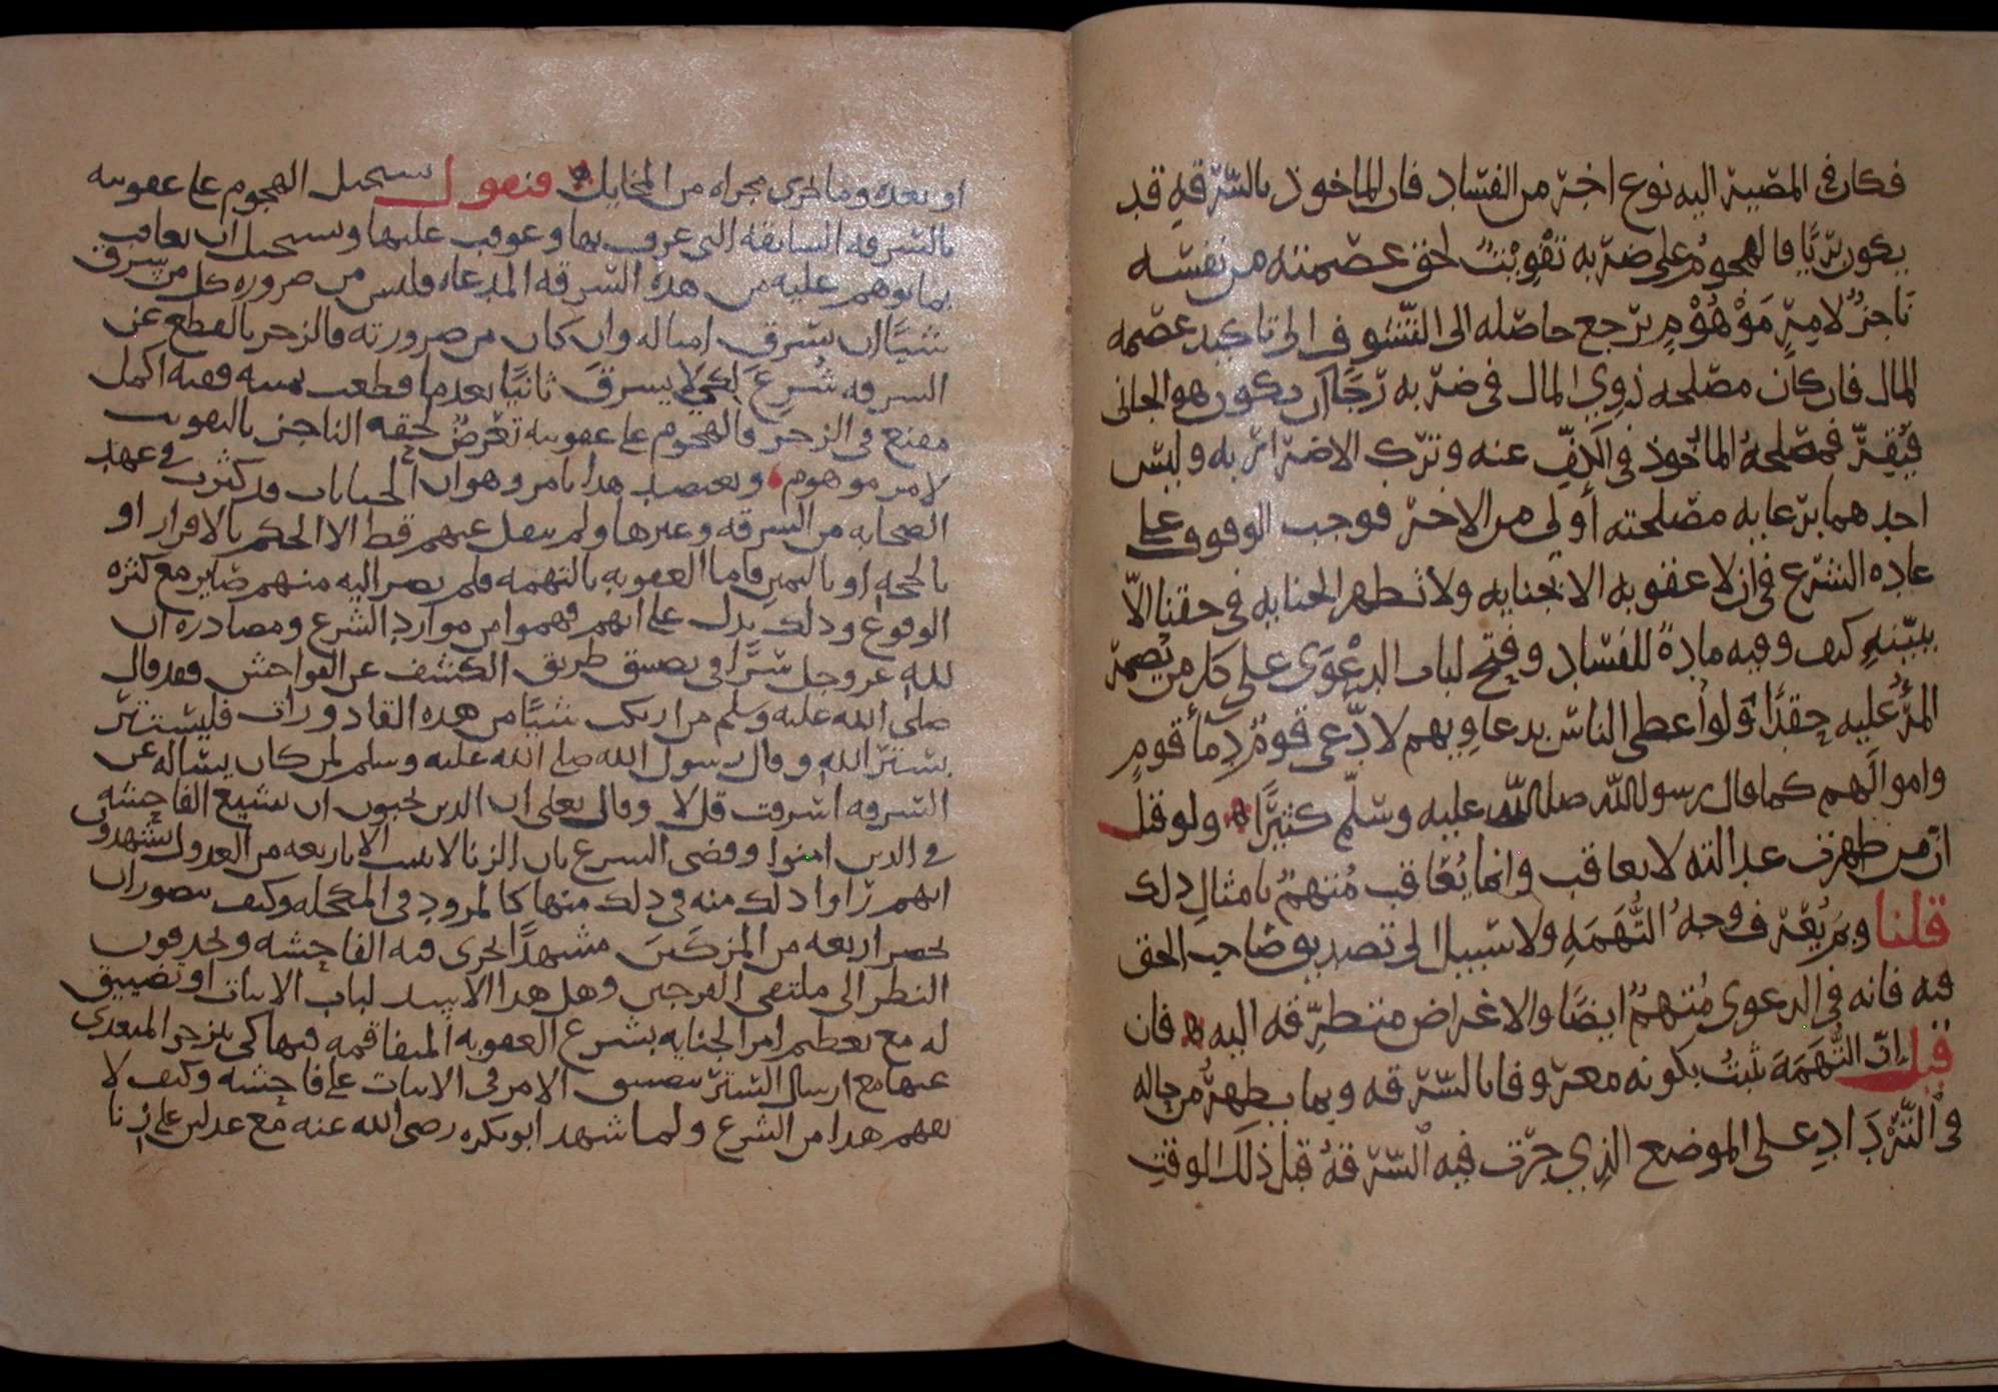 فكان في المصير اليه نوع اخر من الفساد فان الماخوذ بالسرقة قد
يكون بريًا فالهجوم على ضربه تفويت لحق عصمته من نفسه
ناجز لامرٍ موهومٍ يرجع حاصله الى التشوف الى تاكيد عصمه
المال فان كان مصلحه ذوي المال في ضربه رجا ان يكون هو الجاني
فيقر فمصلحه الماخوذ في الكف عنه وترك الاضرار به وليس
احدهما برعايه مصلحته أولى من الاخر فوجب الوقوف على
عاده الشرع في ان لا عقوبه الا بجنايه ولا تظهر الجنايه في حقنا الا
ببينه كيف وفيه مادة للفساد وفتح لباب الدعوى على كل من يضمر
المرء عليه حقدًا ولو أعطى الناس بدعاويهم لادعى قوم دمآ قومٍ
واموالهم كما قال رسول الله صلى الله عليه وسلم كثيرًا ولو قيل
ان من ظهرت عدالته لا يعاقب وانما يعاقب متهم بامثال ذلك
قلنا وبم يعرف وجه التهمه ولا سبيل الى تصديق صاحب الحق
فيه فانه في الدعوى متهم ايضًا والاغراض متطرقه اليه فان
قيل ان التهمه تثبت بكونه معروفا بالسرقه وبما يظهر من حاله
في الترداد على الموضع الذي جرت فيه السرقه قبل ذلك الوقت
او بعده وما جرى مجراه من المخايل فنقول يستحيل الهجوم على عقوبته
بالسرقه السابقه التي عرف بها وعوقب عليها ويستحيل ان يعاقب
بما توهم عليه من هذه السرقه المدعاه فليس من ضروره كل من سرق
شيئًا ان يسرق امثاله وان كان من ضرورته فالزجر بالقطع عن
السرقه شرع لكي لا يسرق ثانيًا بعد ما قطعت يمينه ففيه اكمل
مقنع في الزجر فالهجوم على عقوبته تعرض لحقه الناجز بالتفويت
لامر موهوم ويعتضد هذا بامر وهو ان الجنايات قد كثرت في عهد
الصحابه من السرقه وغيرها ولم ينقل عنهم قط الا الحكم بالاقرار او
بالحجه او باليمين فاما العقوبه بالتهمه فلم يصر اليه منهم صاير مع كثره
الوقوع وذلك يدل على انهم فهموا من موارد الشرع ومصادره ان
لله عز وجل سرًا في تضييق طريق الكشف عن الفواحش فقد قال
صلى الله عليه وسلم من ارتكب شيئًا من هذه القاذورات فليستتر
بستر الله وقال رسول الله صلى الله عليه وسلم لمن كان يساله عن
السرقه اسرقت قل لا وقال تعلى ان الذين يحبون ان تشيع الفاحشه
في الذين امنوا وقضى الشرع بان الزنا لا يثبت الا باربعه من العدول يشهدون
انهم راوا ذلك منه في ذلك منها كالمرود في المكحله وكيف يتصور ان
يحضر اربعه من المزكين مشهدًا تجرى فيه الفاحشه ويحدقون
النظر الى ملتقى الفرجين وهل هذا الا سد لباب الاثبات او تضييق
له مع تعظيم امر الجنايه بشرع العقوبه المتفاقمه فيها كي ينزجر المتعدى
عنها مع ارسال الستر بتضييق الامر في الاثبات على فاحشه وكيف لا
يفهم هذا من الشرع ولما شهد ابو بكره رضى الله عنه مع عدلين على زنا